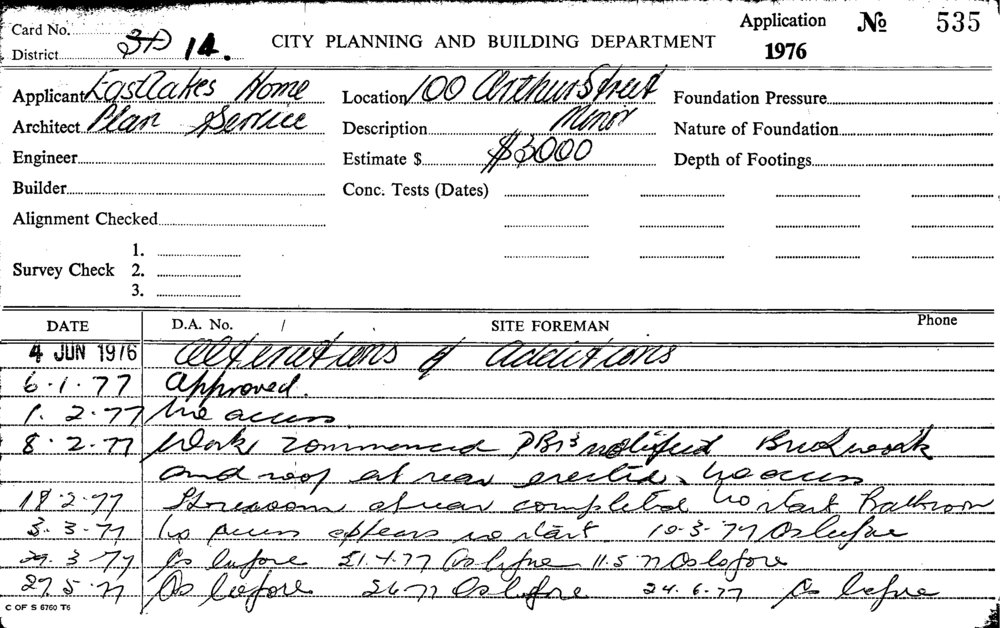 Card No.
District 3D 14.
CITY PLANNING AND BUILDING DEPARTMENT
Application No 535
1976
Applicant Eastlakes Home
Architect Plan Service
Engineer
Builder
Alignment Checked
Survey Check 1.
2.
3.
Location 100 Arthur Street
Description Minor
Estimate $ $3000
Conc. Tests (Dates)
Foundation Pressure
Nature of Foundation
Depth of Footings
DATE D.A. No. SITE FOREMAN Phone
4 JUN 1976 Alterations & additions
6.1.77 Approved.
1.2.77 No access
8.2.77 Work commenced notified Brickwork
and roof at rear erected. No access
18.2.77 Storeroom at rear completed no start Bathroom
3.3.77 No access appears no start 10-3-77 As before
29.3.77 As before 21.4.77 As before 11.5.77 As before
27.5.77 As before As before 24.6.77 As before
C OF S 6760 T6